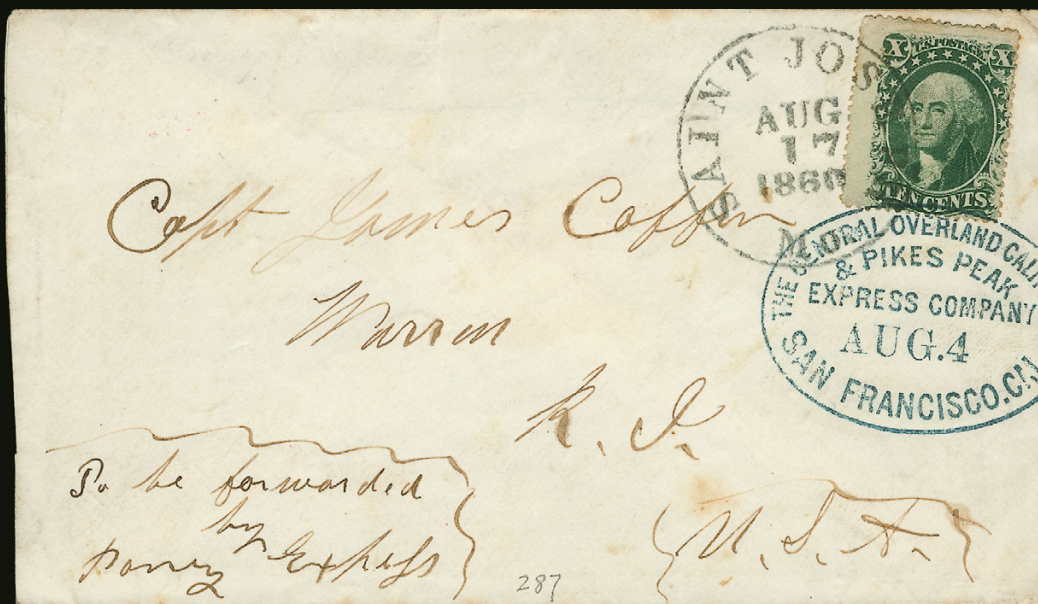 SAINT JOS
AUG
17
1860
MO.
X U.S. POSTAGE X
TEN CENTS
THE CENTRAL OVERLAND CALIF
& PIKES PEAK
EXPRESS COMPANY
AUG. 4
SAN FRANCISCO, CAL
Capt James Coffin
Warren
R. I.
U. S. A.
To be forwarded
by
Poney Express
287